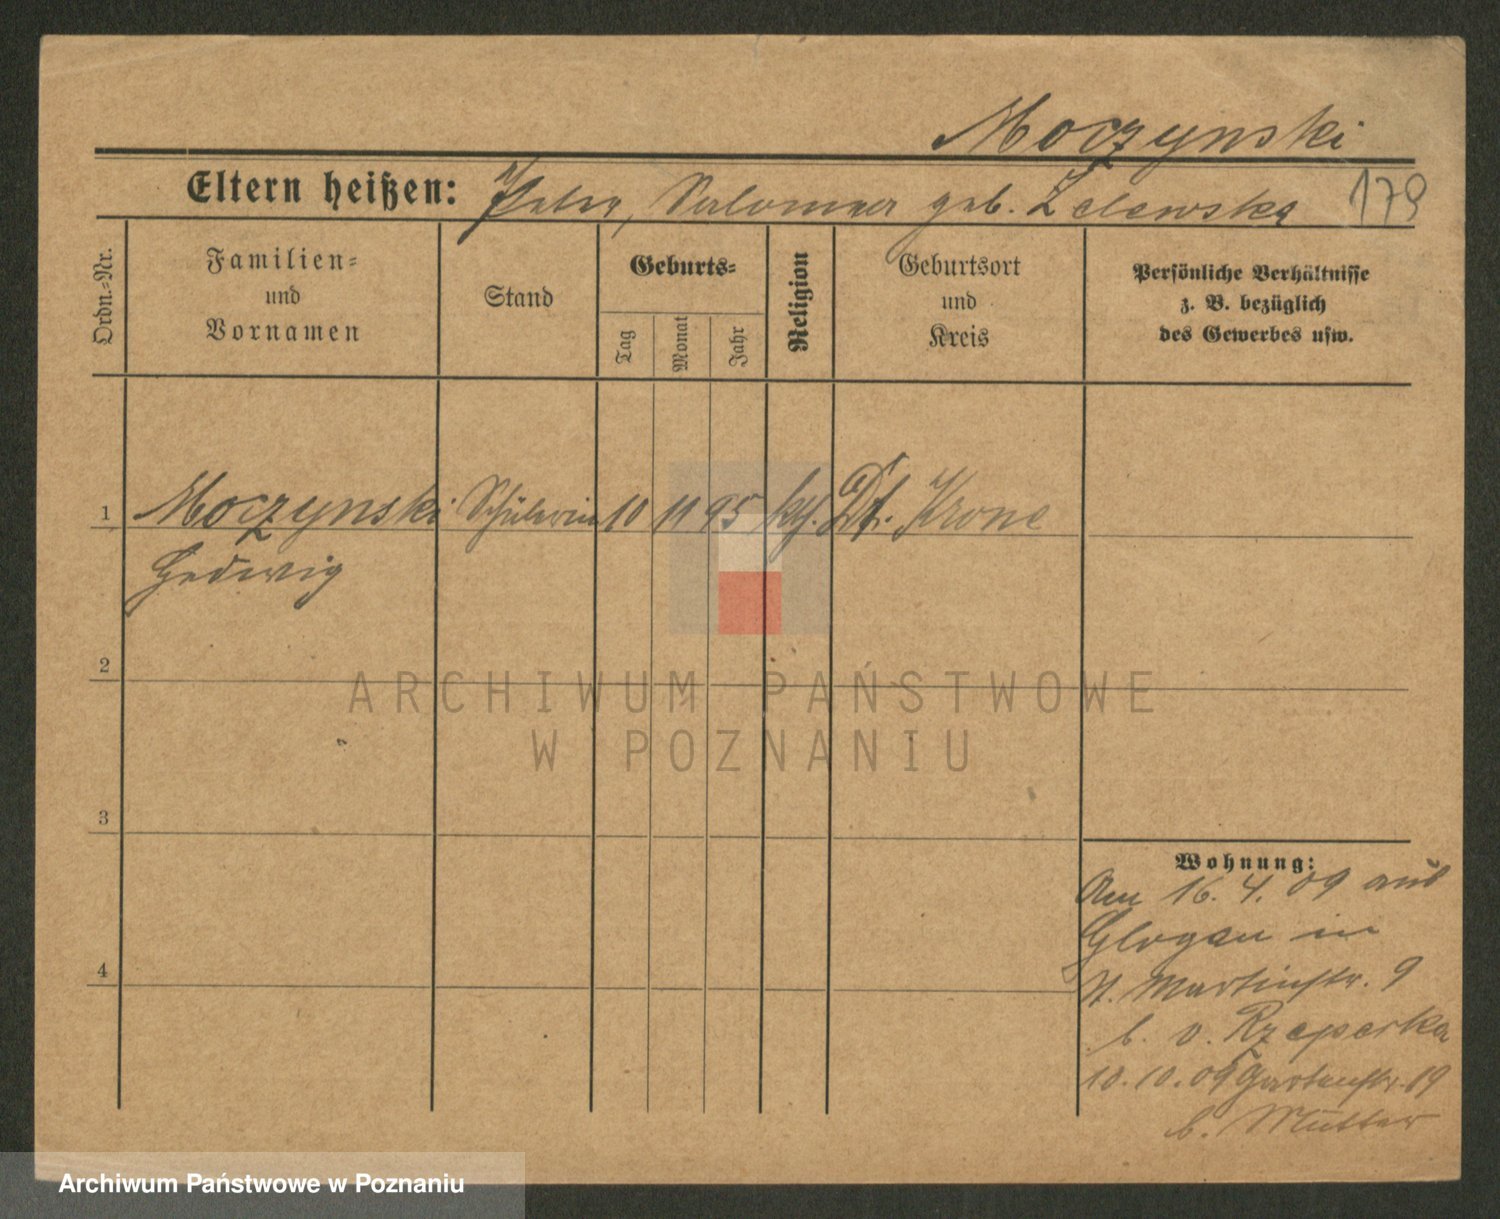 Moczynski
Eltern heißen: Peter, Salomea geb. Zelewska 179
Ordn.-Nr.
Familien-
und
Vornamen
Stand
Geburts-
Tag
Monat
Jahr
Religion
Geburtsort
und
Kreis
Persönliche Verhältnisse
z. B. bezüglich
des Gewerbes usw.
1 Moczynski Schülerin 10 11 95 kth. Dt. Krone
Hedwig
2
ARCHIWUM PAŃSTWOWE
W POZNANIU
3
4
Wohnung:
Am 16. 4. 09 aus
Glogau in
St. Martinstr. 9
b. v.
10. 10. 09 Gartenstr. 19
b. Mutter
Archiwum Państwowe w Poznaniu